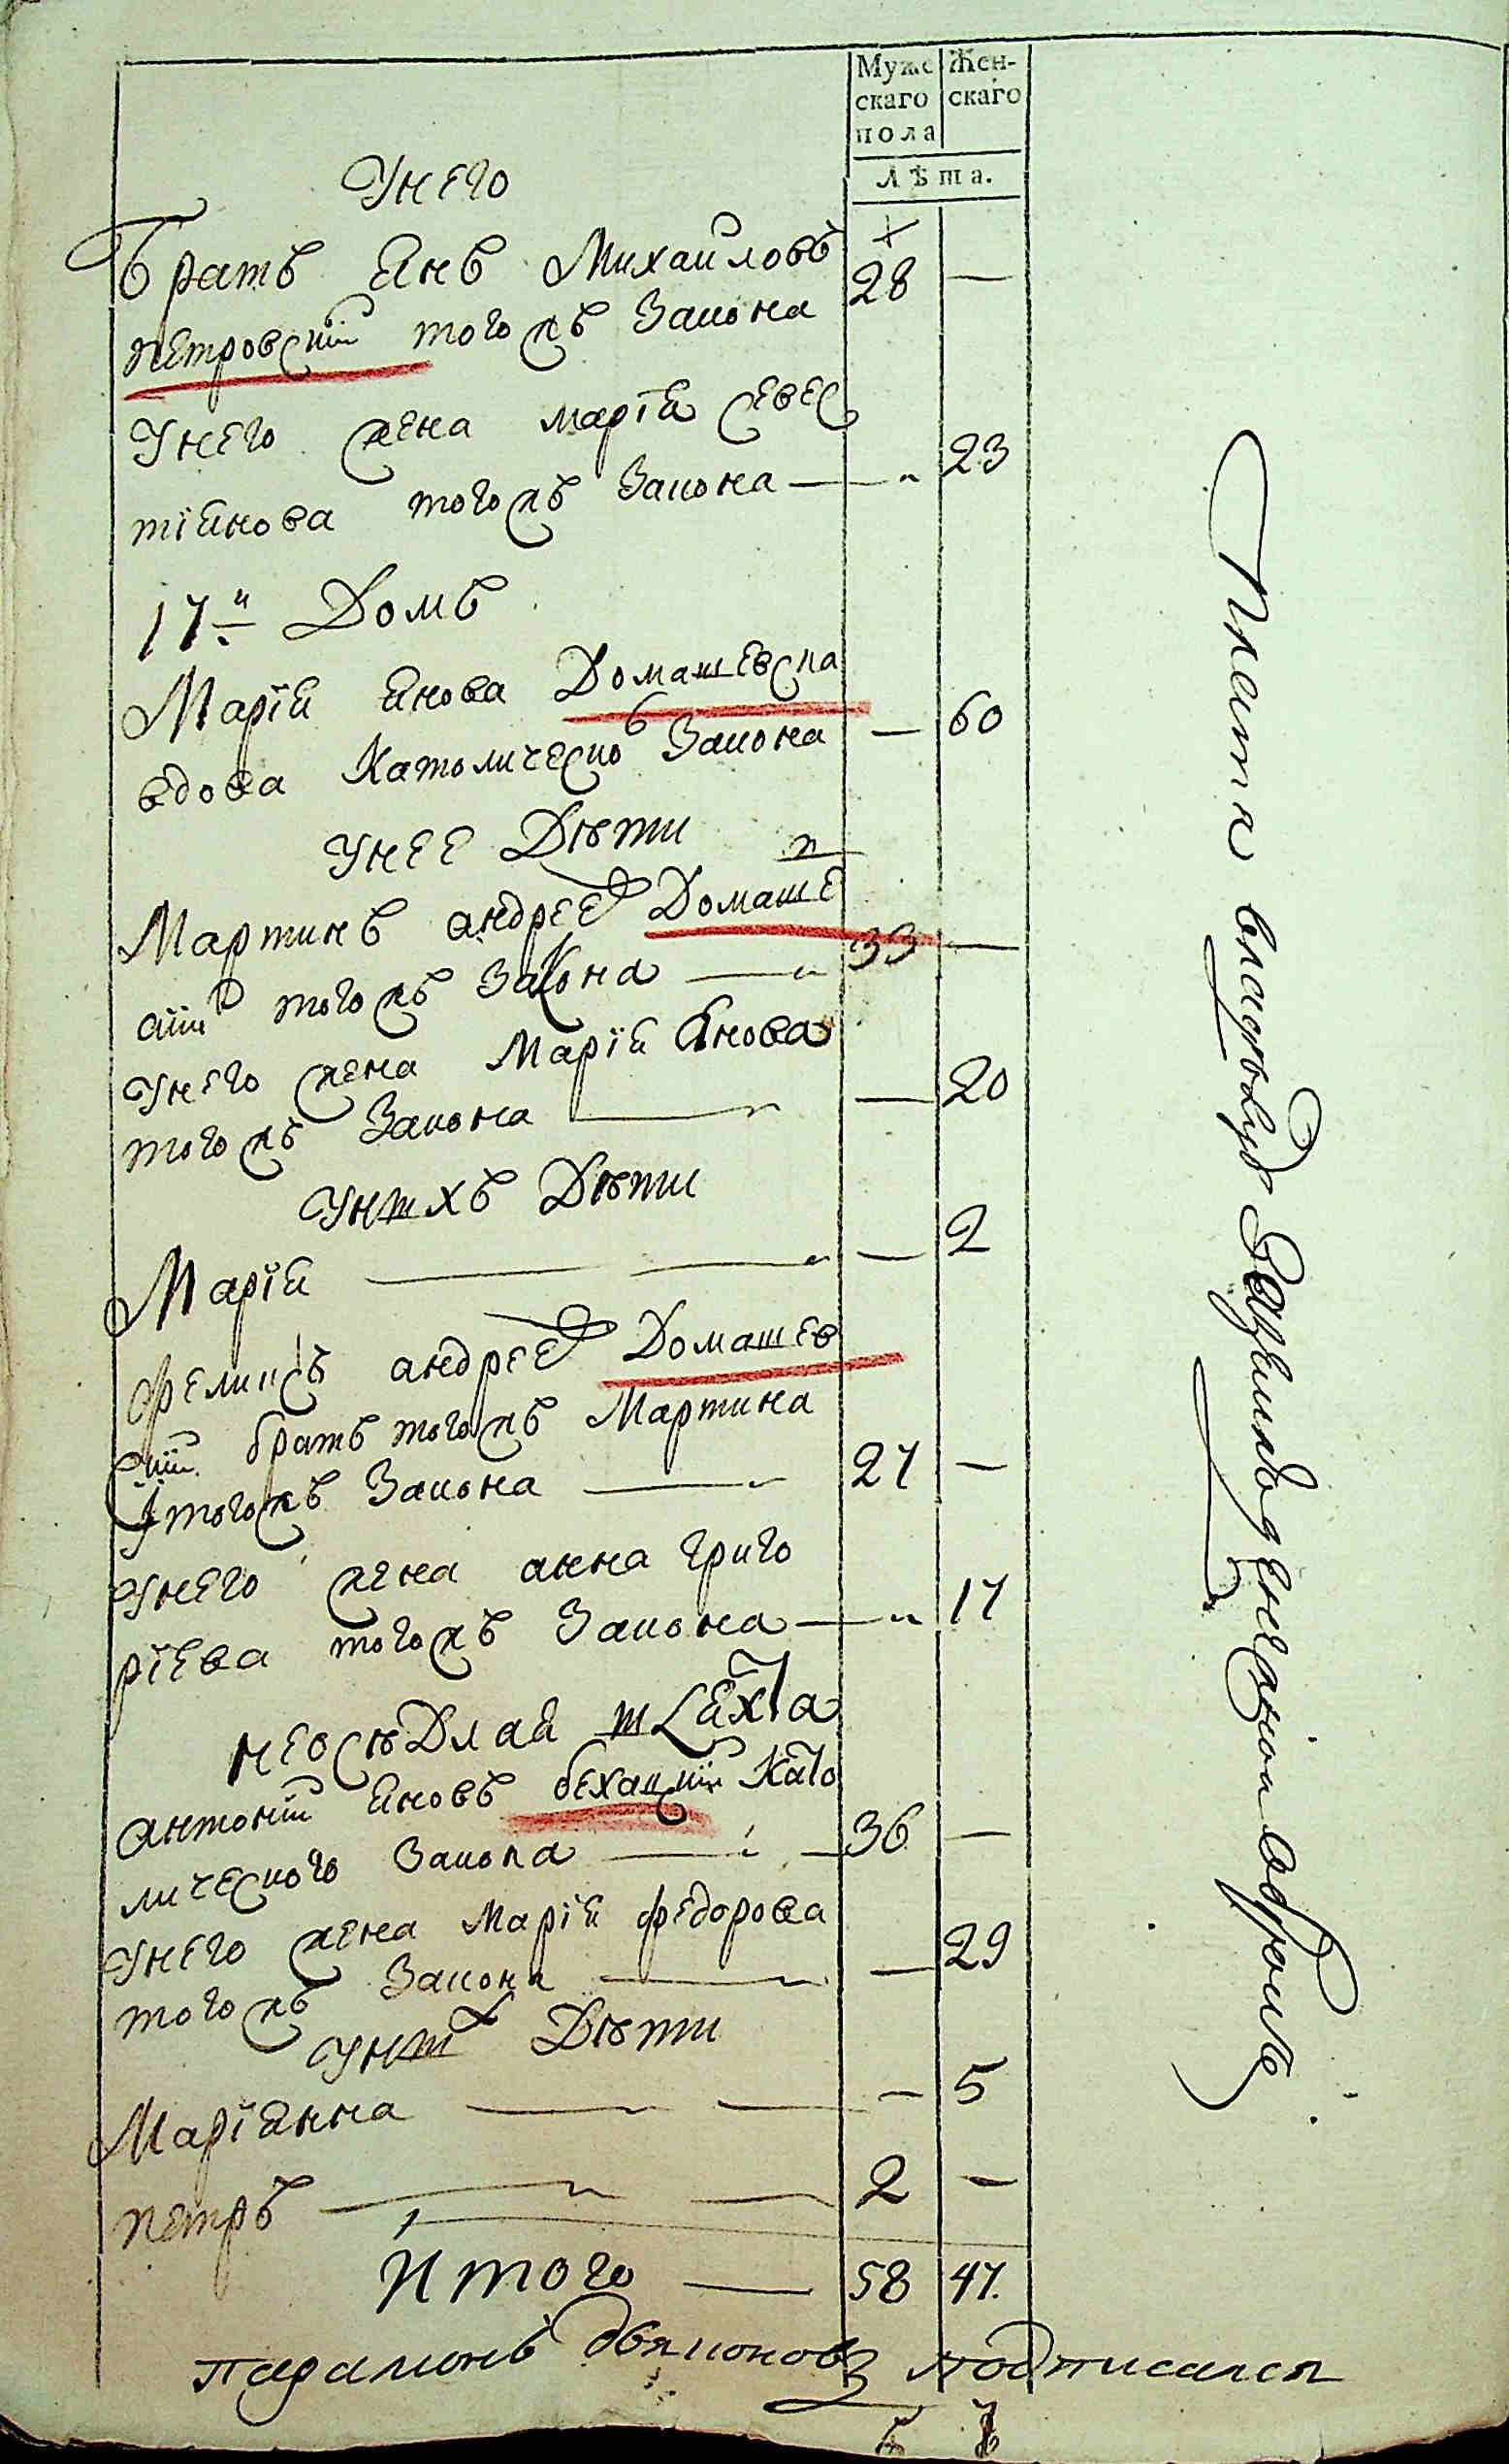 Муже Жен-
скаго скаго
пола
Лѣта.
У него
Братъ Янъ Михаиловъ 28 —
Петровскїй того жъ Закона
У него жена Марїя Севес
тїянова того жъ Закона — 23
17й Домъ
Марїя Янова Домашевска
вдова Католическо Закона — 60
У нее Дѣти
Мартинъ андреев Домашев
скїй того жъ Закона — 33 —
У него жена Марїя Янова
того жъ Закона — — 20
У нихъ Дѣти
Марїя — — — 2
Феликсъ андреев Домашев
скїй братъ того жъ Мартина
и того жъ Закона — 27 —
У него жена анна григо
рїева того жъ Закона — 17
Неосѣдлая шляхта
антонїй Яновъ бехацкїй Като
лического Закона — 36 —
У него жена Марїя федорова
того жъ Закона — — 29
У них Дѣти
Марїянна — — — 5
Петръ — — 2 —
Итого — 58 47.
Парамонъ подписался